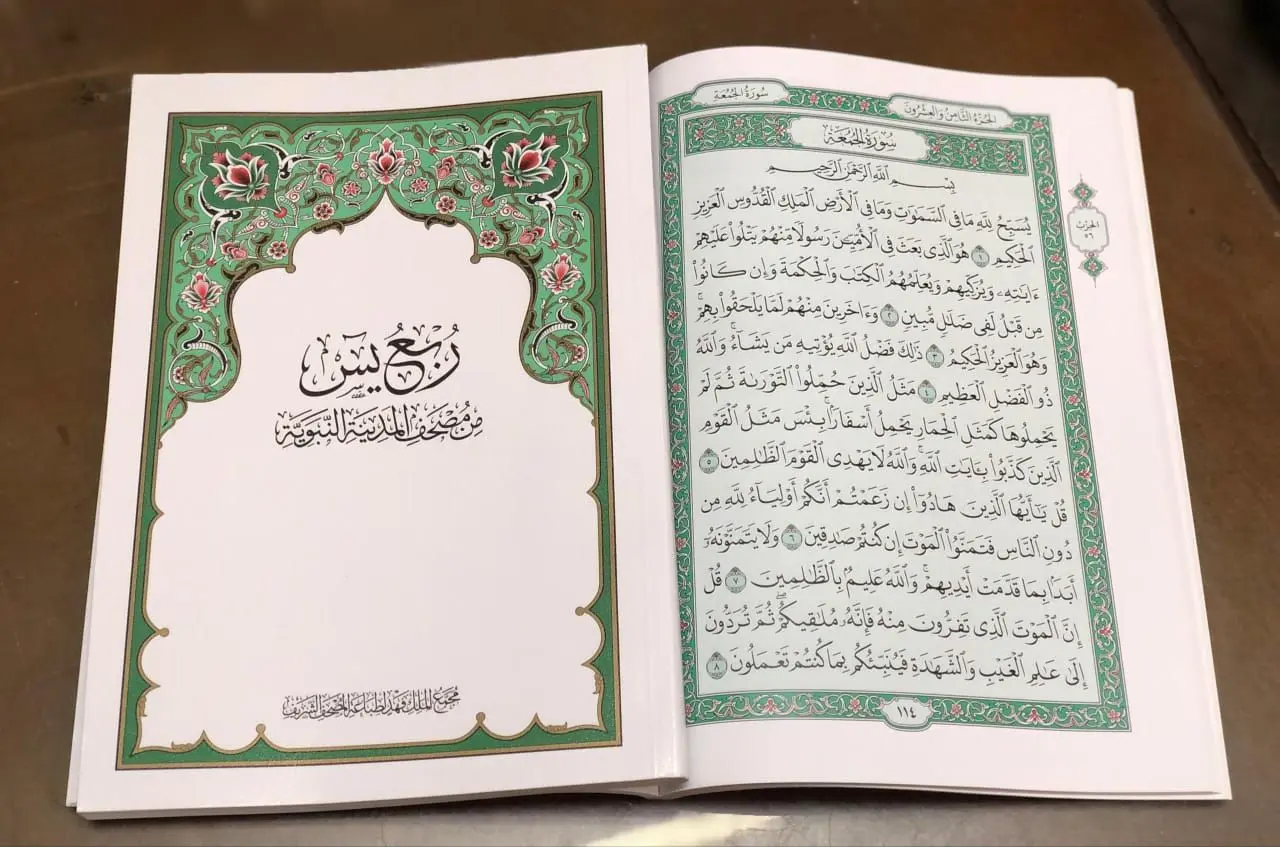 سُورَةُ الجُمُعَةِ
الجُزْءُ الثَّامِنُ وَالعِشْرُونَ
سُورَةُ الجُمُعَةِ
بِسْمِ ٱللَّهِ ٱلرَّحْمَٰنِ ٱلرَّحِيمِ
يُسَبِّحُ لِلَّهِ مَا فِى ٱلسَّمَٰوَٰتِ وَمَا فِى ٱلْأَرْضِ ٱلْمَلِكِ ٱلْقُدُّوسِ ٱلْعَزِيزِ
ٱلْحَكِيمِ ١ هُوَ ٱلَّذِى بَعَثَ فِى ٱلْأُمِّيِّـۧنَ رَسُولًا مِّنْهُمْ يَتْلُوا۟ عَلَيْهِمْ
ءَايَٰتِهِۦ وَيُزَكِّيهِمْ وَيُعَلِّمُهُمُ ٱلْكِتَٰبَ وَٱلْحِكْمَةَ وَإِن كَانُوا۟
مِن قَبْلُ لَفِى ضَلَٰلٍ مُّبِينٍ ٢ وَءَاخَرِينَ مِنْهُمْ لَمَّا يَلْحَقُوا۟ بِهِمْۚ
وَهُوَ ٱلْعَزِيزُ ٱلْحَكِيمُ ٣ ذَٰلِكَ فَضْلُ ٱللَّهِ يُؤْتِيهِ مَن يَشَآءُۚ وَٱللَّهُ
ذُو ٱلْفَضْلِ ٱلْعَظِيمِ ٤ مَثَلُ ٱلَّذِينَ حُمِّلُوا۟ ٱلتَّوْرَىٰةَ ثُمَّ لَمْ
يَحْمِلُوهَا كَمَثَلِ ٱلْحِمَارِ يَحْمِلُ أَسْفَارًۢاۚ بِئْسَ مَثَلُ ٱلْقَوْمِ
ٱلَّذِينَ كَذَّبُوا۟ بِـَٔايَٰتِ ٱللَّهِۚ وَٱللَّهُ لَا يَهْدِى ٱلْقَوْمَ ٱلظَّٰلِمِينَ ٥
قُلْ يَٰٓأَيُّهَا ٱلَّذِينَ هَادُوٓا۟ إِن زَعَمْتُمْ أَنَّكُمْ أَوْلِيَآءُ لِلَّهِ مِن
دُونِ ٱلنَّاسِ فَتَمَنَّوُا۟ ٱلْمَوْتَ إِن كُنتُمْ صَٰدِقِينَ ٦ وَلَا يَتَمَنَّوْنَهُۥٓ
أَبَدًۢا بِمَا قَدَّمَتْ أَيْدِيهِمْۚ وَٱللَّهُ عَلِيمٌۢ بِٱلظَّٰلِمِينَ ٧ قُلْ
إِنَّ ٱلْمَوْتَ ٱلَّذِى تَفِرُّونَ مِنْهُ فَإِنَّهُۥ مُلَٰقِيكُمْۖ ثُمَّ تُرَدُّونَ
إِلَىٰ عَٰلِمِ ٱلْغَيْبِ وَٱلشَّهَٰدَةِ فَيُنَبِّئُكُم بِمَا كُنتُمْ تَعْمَلُونَ ٨
١١٤
الحِزْبُ
٥٦
رُبْعُ يسٓ
مِنْ مُصْحَفِ المَدِينَةِ النَّبَوِيَّةِ
مُجَمَّعُ المَلِكِ فَهْدٍ لِطِبَاعَةِ المُصْحَفِ الشَّرِيفِ